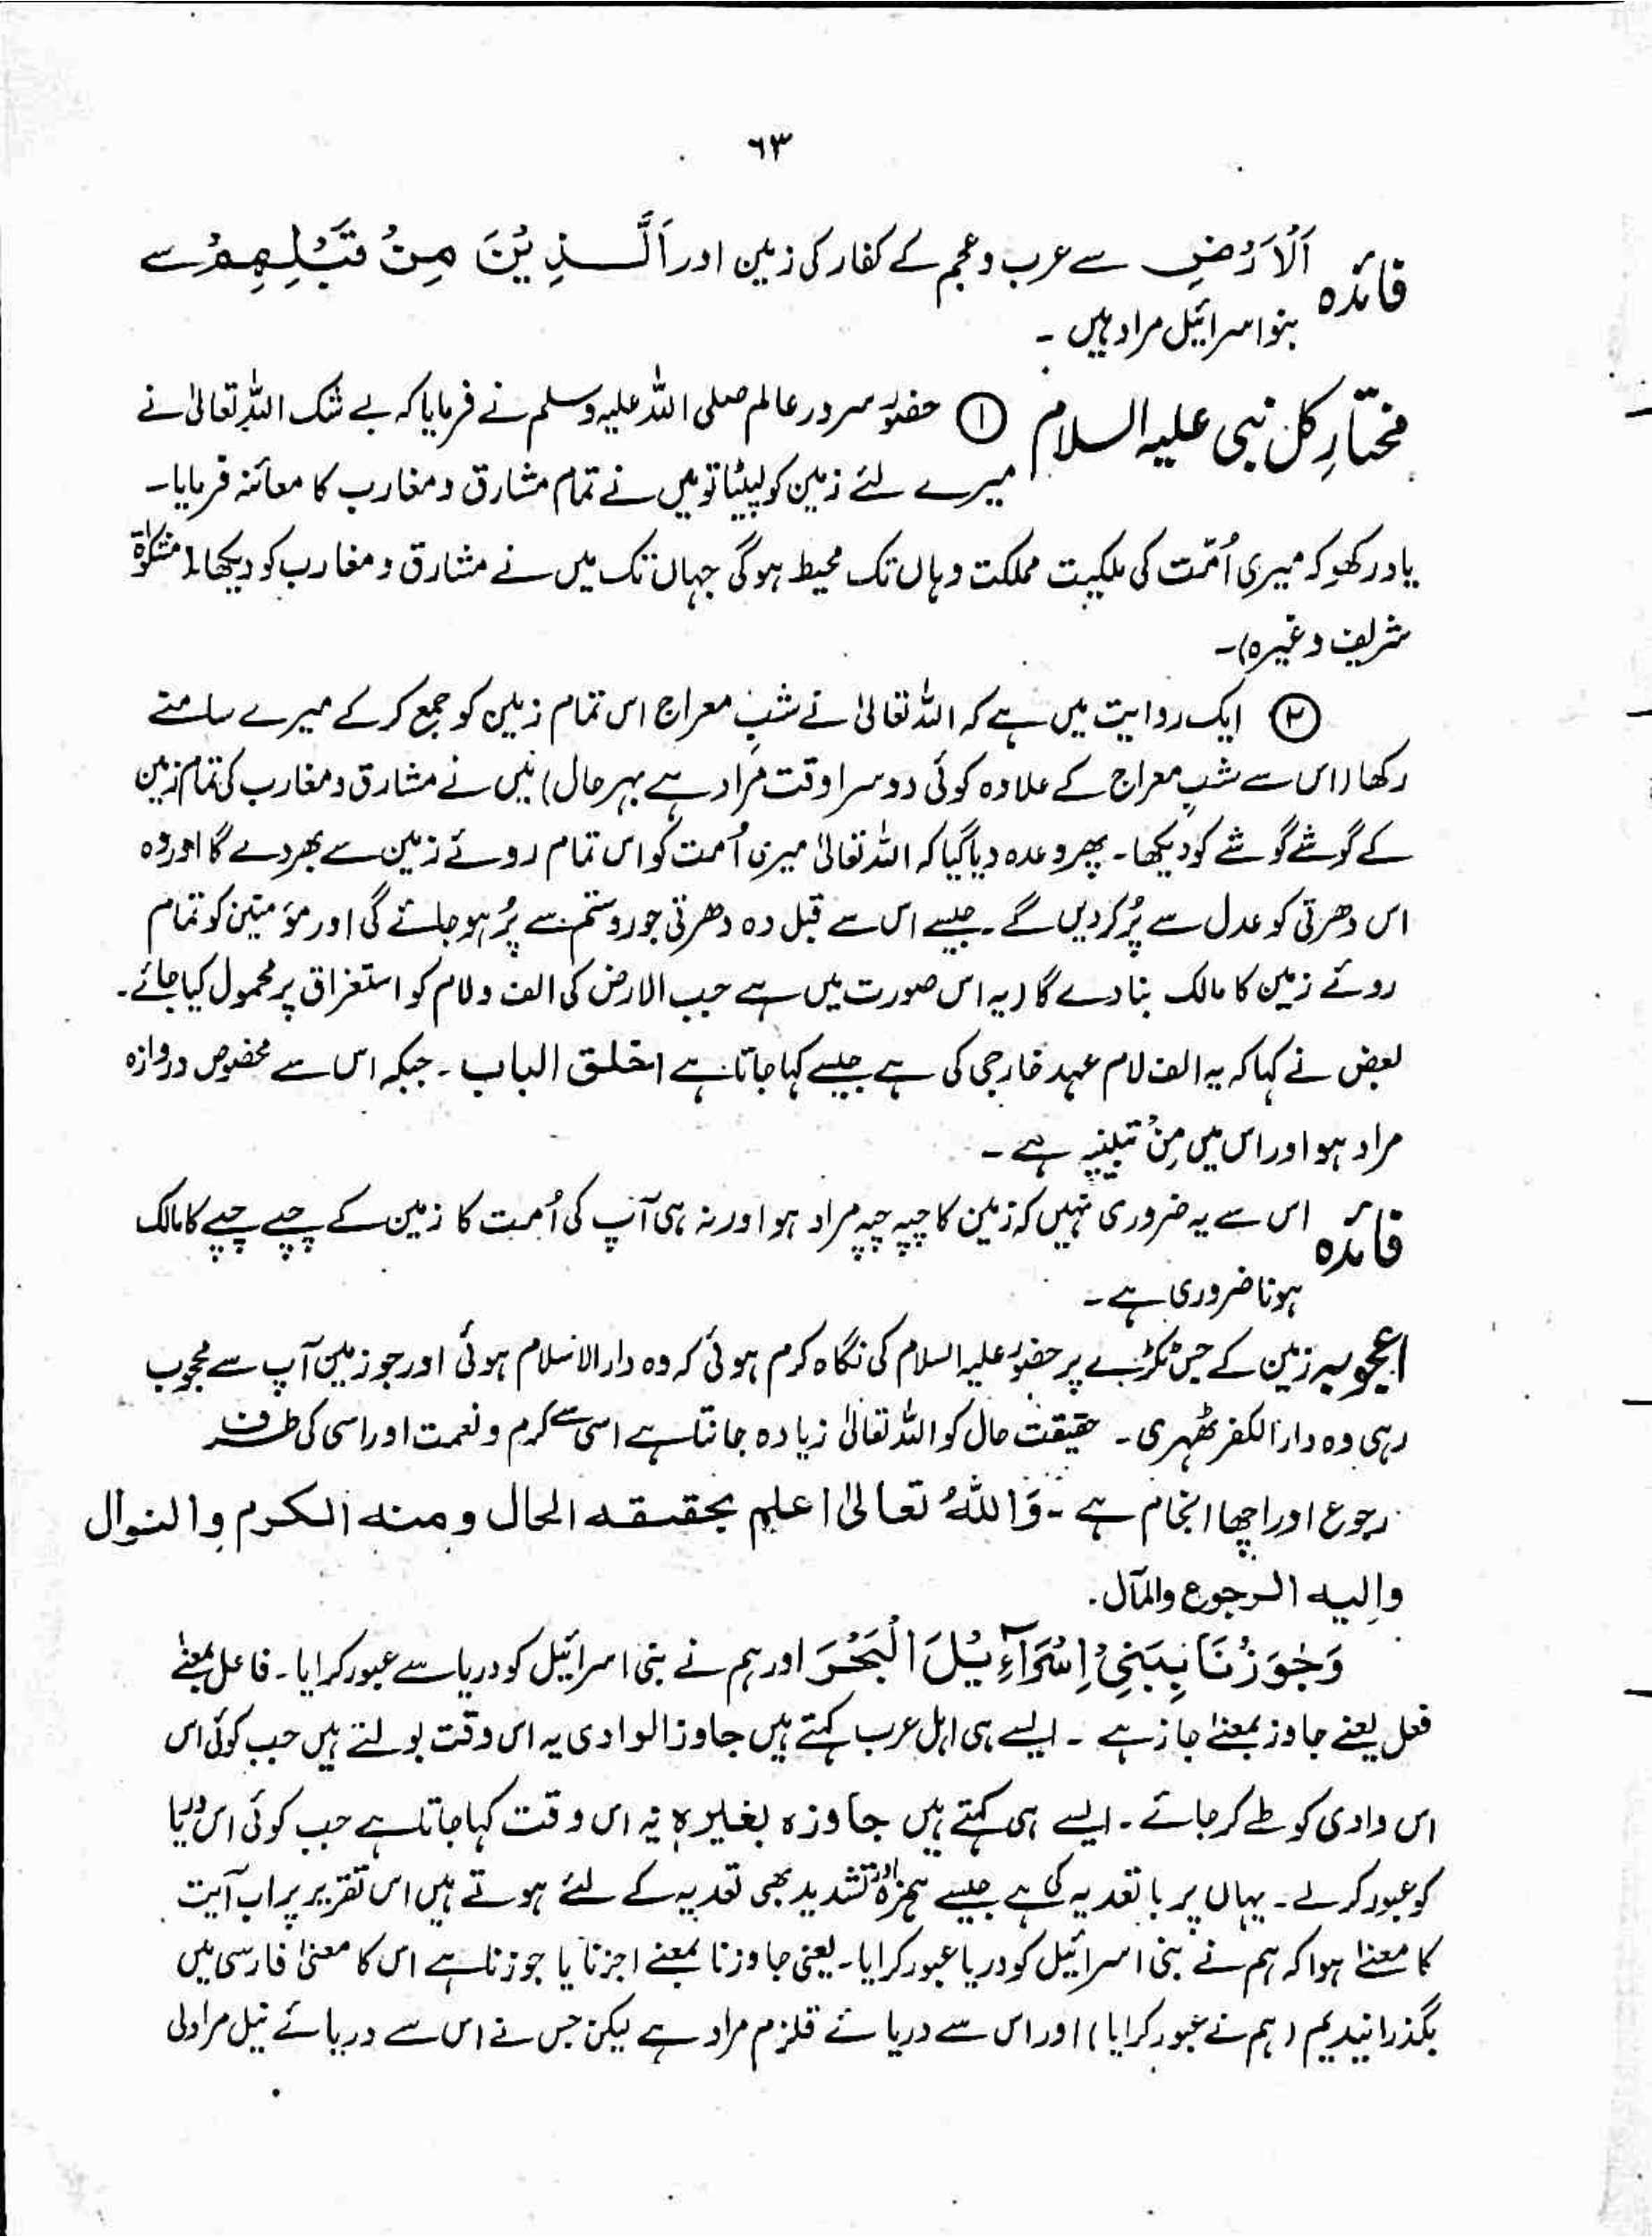 ٦٣
فائدہ اَلْاَرْضِ سے عرب و عجم کے کفار کی زمین اور اَلَّذِیْنَ مِنْ قَبْلِهِمْ سے
بنو اسرائیل مراد ہیں ۔
مختارِ کل نبی علیہ السلام ① حضور سرور عالم صلی اللہ علیہ وسلم نے فرمایا کہ بے شک اللہ تعالیٰ نے
میرے لئے زمین کو لپیٹا تو میں نے تمام مشارق و مغارب کا معائنہ فرمایا۔
یاد رکھو کہ میری اُمّت کی ملکیت مملکت وہاں تک محیط ہو گی جہاں تک میں نے مشارق و مغارب کو دیکھا (مشکوٰۃ
شریف وغیرہ)۔
② ایک روایت میں ہے کہ اللہ تعالیٰ نے شبِ معراج اس تمام زمین کو جمع کر کے میرے سامنے
رکھا (اس سے شبِ معراج کے علاوہ کوئی دوسرا وقت مُراد ہے بہر حال) میں نے مشارق و مغارب کی تمام زمین
کے گوشے گوشے کو دیکھا۔ پھر وعدہ دیا گیا کہ اللہ تعالیٰ میری اُمت کو اس تمام روئے زمین سے بھر دے گا اور وہ
اس دھرتی کو عدل سے پُر کر دیں گے۔ جیسے اس سے قبل وہ دھرتی جور و ستم سے پُر ہو جائے گی اور مؤمنین کو تمام
روئے زمین کا مالک بنا دے گا (یہ اس صورت میں ہے جب الارض کی الف و لام کو استغراق پر محمول کیا جائے۔
بعض نے کہا کہ یہ الف لام عہد خارجی کی ہے جیسے کہا جاتا ہے اخلق الباب ۔ جبکہ اس سے مخصوص دروازہ
مراد ہو اور اس میں مِنْ تبیینیہ ہے ۔
فائدہ اس سے یہ ضروری نہیں کہ زمین کا چپہ چپہ مراد ہو اور نہ ہی آپ کی اُمت کا زمین کے چپے چپے کا مالک
ہونا ضروری ہے ۔
اعجوبہ زمین کے جس ٹکڑے پر حضور علیہ السلام کی نگاہ کرم ہوئی کہ وہ دار الاسلام ہوئی اور جو زمین آپ سے محجوب
رہی وہ دار الکفر ٹھہری ۔ حقیقت حال کو اللہ تعالیٰ زیادہ جانتا ہے اسی سے کرم و نعمت اور اسی کی طرف
رجوع اور اچھا انجام ہے ۔ وَاللّٰهُ تعالیٰ اعلم بحقیقه الحال ومنه الکرم والنوال
والیه الرجوع والمآل۔
وَجٰوَزْنَا بِبَنِیْ اِسْرَآءِیْلَ الْبَحْرَ اور ہم نے بنی اسرائیل کو دریا سے عبور کرایا ۔ فاعل بمعنے
فعل یعنے جاوز بمعنےٰ جاز ہے ۔ ایسے ہی اہل عرب کہتے ہیں جاوز الوادی یہ اس وقت بولتے ہیں جب کوئی اس
اس وادی کو طے کر جائے ۔ ایسے ہی کہتے ہیں جاوزہ بغیرہ یہ اس وقت کہا جاتا ہے جب کوئی اس دریا
کو عبور کر لے ۔ یہاں پر با تعدیہ کی ہے جیسے ہمزہ اور تشدید بھی تعدیہ کے لئے ہوتے ہیں اس تقریر پر اب آیت
کا معنےٰ ہوا کہ ہم نے بنی اسرائیل کو دریا عبور کرایا ۔ یعنی جاوزنا بمعنے اجزنا یا جوزنا ہے اس کا معنیٰ فارسی میں
بگذرانیدیم (ہم نے عبور کرایا) اور اس سے دریائے قلزم مراد ہے لیکن جس نے اس سے دریائے نیل مراد لی